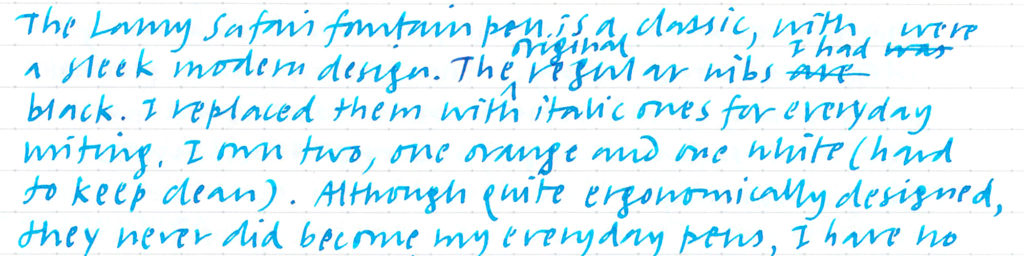 The Lamy Safari fountain pen is a classic, with
a sleek modern design. The original regular nibs I had were
black. I replaced them with italic ones for everyday
writing. I own two, one orange and one white (hard
to keep clean). Although quite ergonomically designed,
they never did become my everyday pens, I have no